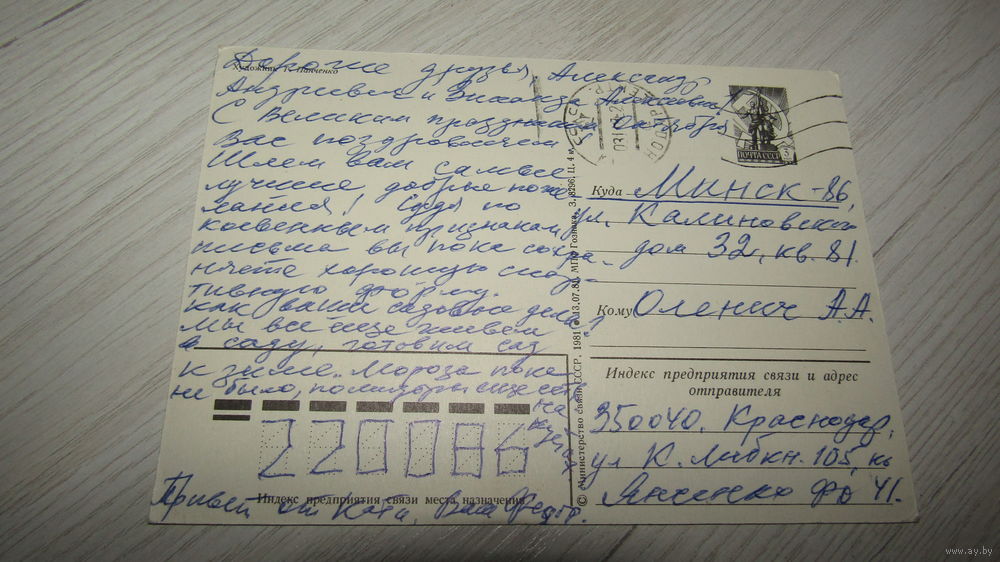 Художник Г. Панченко
Дорогие друзья, Александр
Андреевич и Алексеевна!
С Великим праздником Октября
Вас поздравляем
Шлем вам самые
лучшие, добрые поже
лания! Судя по
косвенным признакам
письма вы пока сохра-
няете хорошую спор
тивную форму.
Как ваши садовые дела?
Мы все еще живем
в саду, готовим сад
к зиме. Мороза пока
не было, помидоры еще есть
на
кустах
Привет от Кати, Ваш Федор.
ПОЧТА СССР
Куда Минск-86,
ул. Калиновского
дом 32, кв. 81.
Кому Оленич А.А.
Индекс предприятия связи и адрес
отправителя
350040. Краснодар,
ул К. Либкн. 105, кв
41.
220086
Индекс предприятия связи места назначения
© Министерство связи СССР, 1981 13.07.81. МПФ Гознака. З. 8296. Ц. 4 к.
www.ay.by